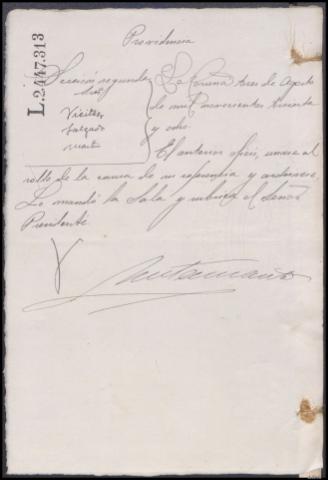 L.2447.313
Providencia
Sección segunda
Srs.
Vieites
Salgado
Mart
La Coruña tres de Agosto
de mil novecientos treinta
y ocho.
El anterior oficio, unase al
rollo de la causa de su referencia y archívese
Lo mandó la Sala y rubrica el Señor
Presidente.